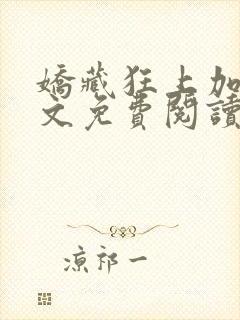 嬌藏狂上加
文免費閱讀
涼祁一